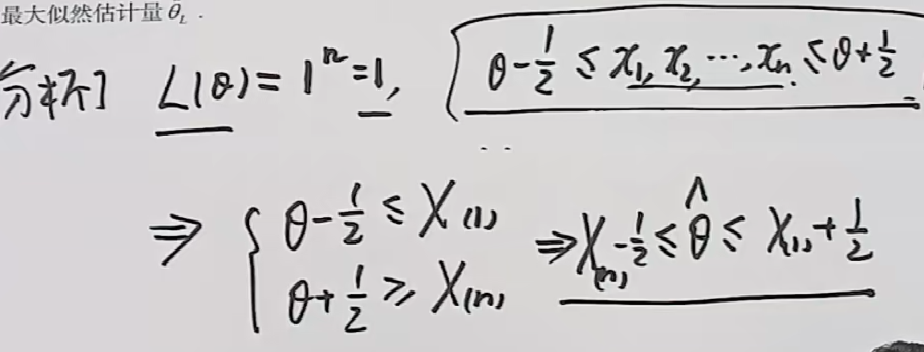 最大似然估计量 θ̂_L .
分析] L(θ) = 1ⁿ = 1, θ - 1/2 ≤ x₁, x₂, ⋯, xₙ. ≤ θ + 1/2
⇒ { θ - 1/2 ≤ X₍₁₎ ⇒ X₍ₙ₎ - 1/2 ≤ θ̂ ≤ X₍₁₎ + 1/2
θ + 1/2 ≥ X₍ₙ₎